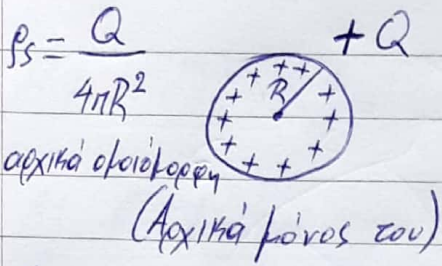 ρs = Q / 4πR²
+Q
R
αρχικά ομοιόμορφη
(Αρχικά μόνος του)